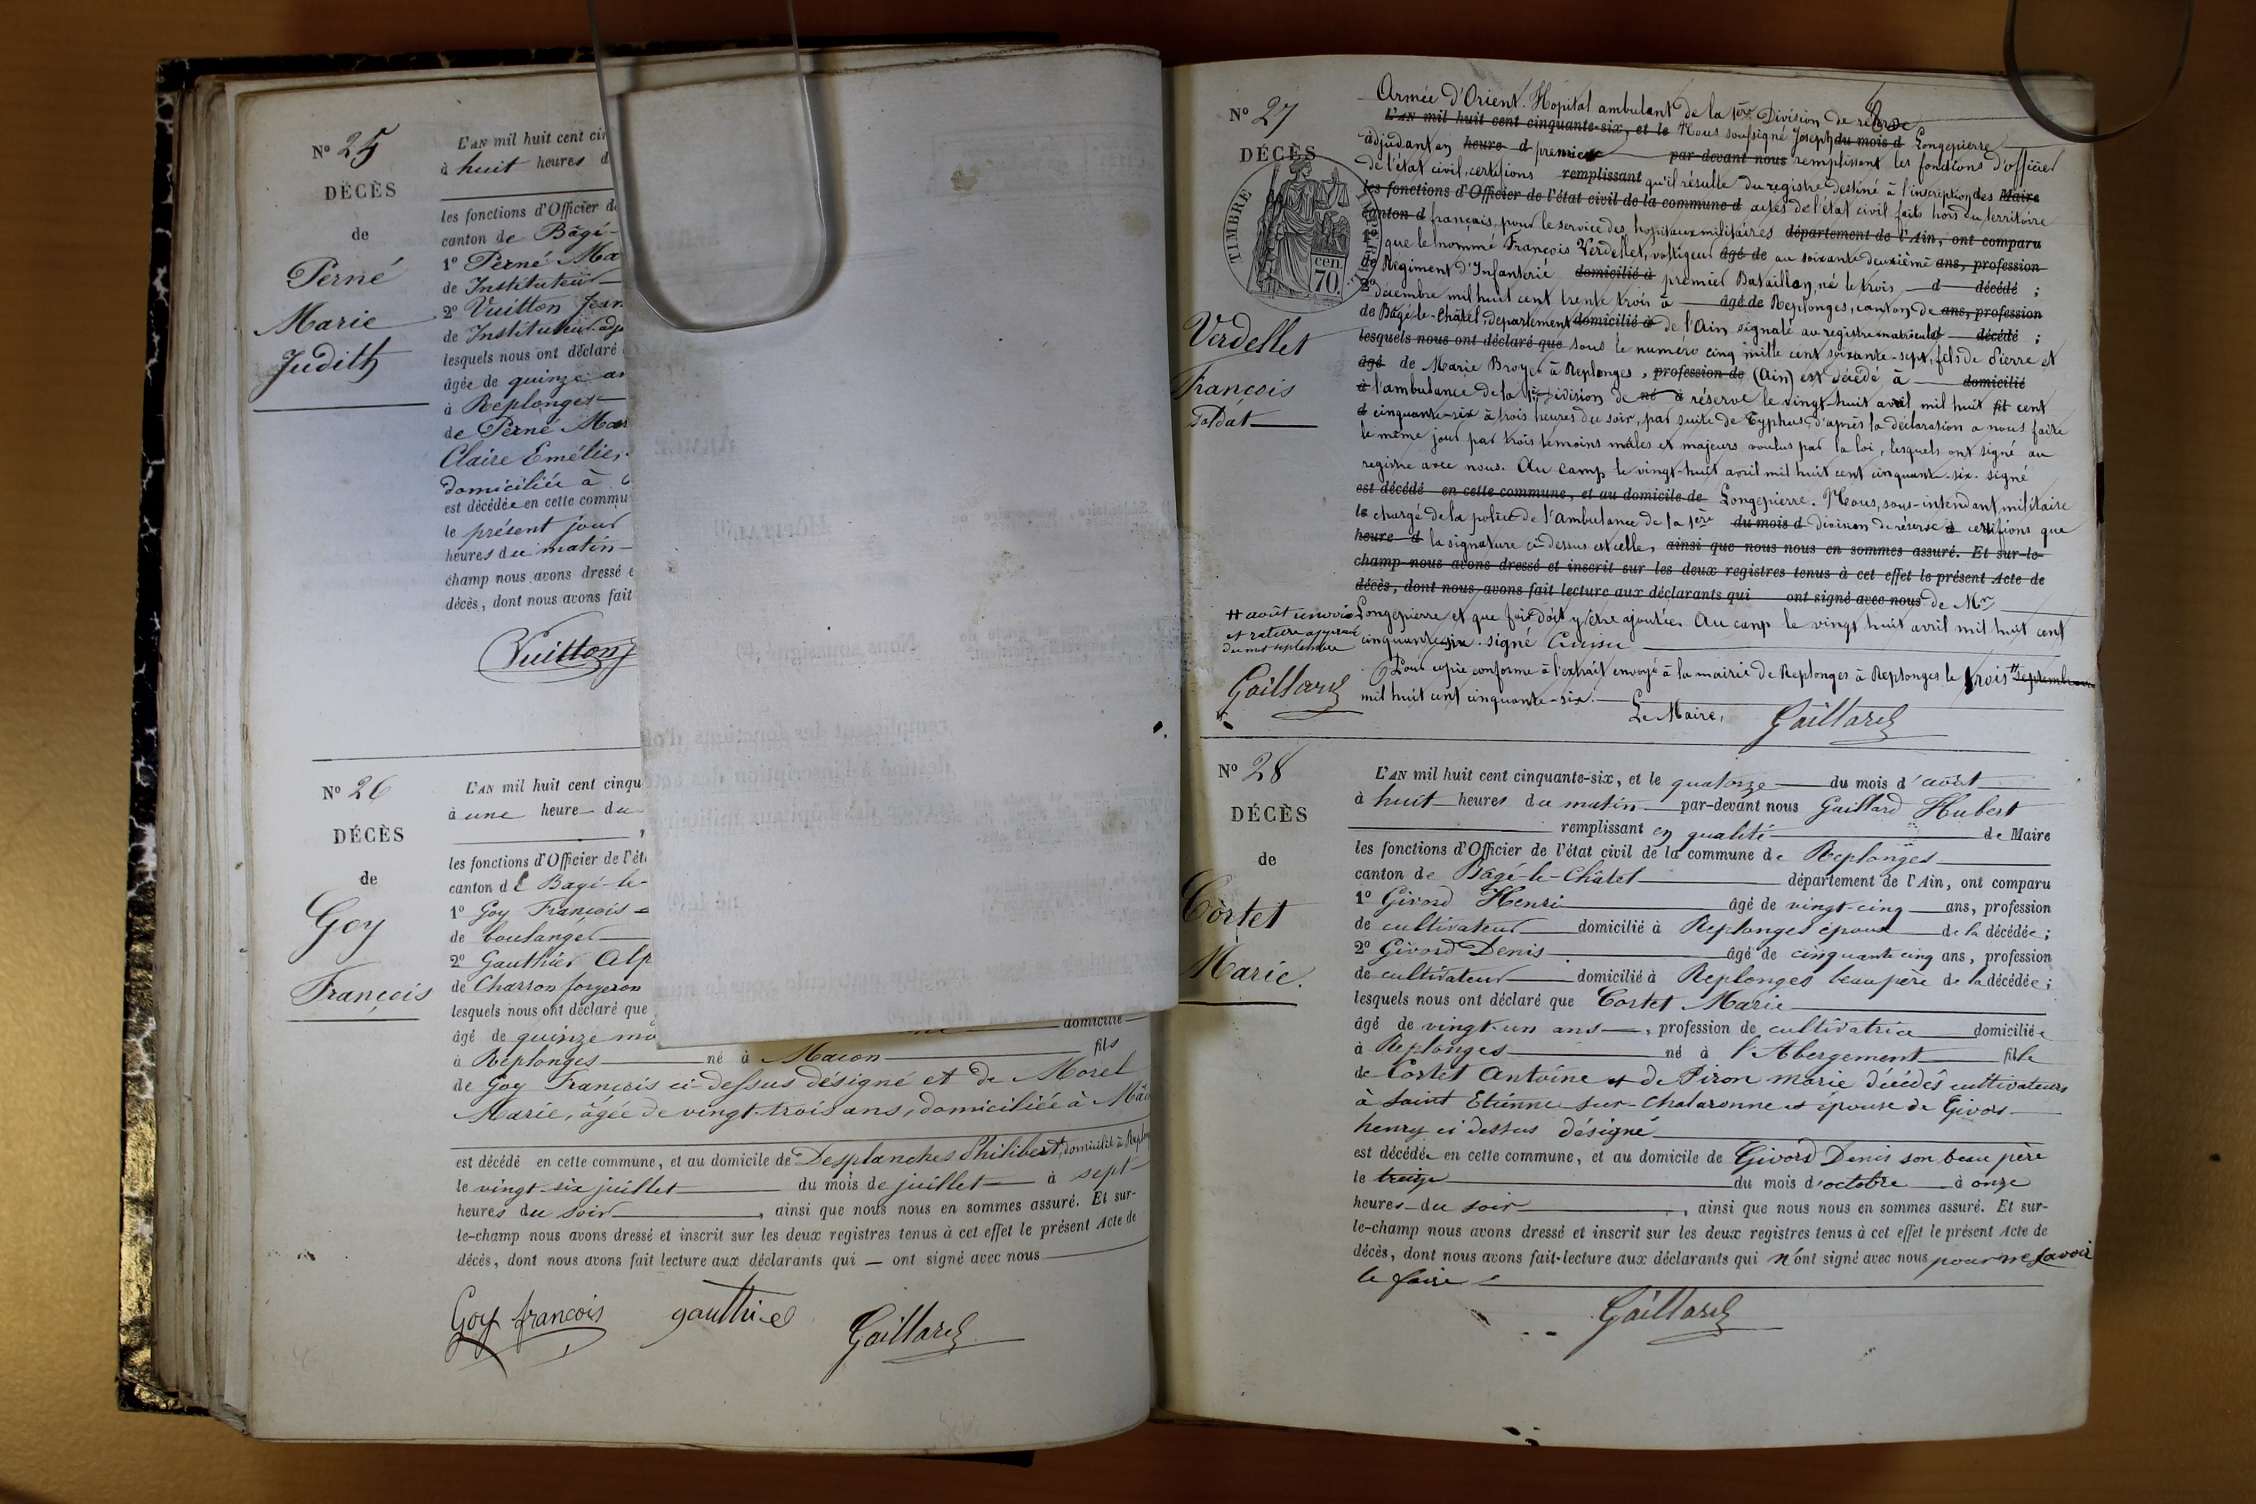 N° 25
DÉCÈS
de
Perné
Marie
Judith
L'AN mil huit cent cin
à huit heures d
les fonctions d'Officier d
canton de Bâgé-
1° Perné Ma
de Instituteur
2° Vuitton Jean
de Instituteur adj
lesquels nous ont déclaré
âgée de quinze an
à Replonges
de Perné Mar
Claire Emélie,
domiciliée à
est décédée en cette commu
le présent jour
heures du matin
champ nous avons dressé e
décès, dont nous avons fait
Vuitton
N° 26
DÉCÈS
de
Goy
François
L'AN mil huit cent cinqu
à une heure du
les fonctions d'Officier de l'ét
canton de Bagé-le-
1° Goy François
de boulanger
2° Gauthier Alp
de Charron forgeron
lesquels nous ont déclaré que
âgé de quinze mo domicilié
à Replonges né à Macon fils
de Goy François ci-dessus désigné et de Morel
Marie, âgée de vingt-trois ans, domiciliée à Mâc
est décédé en cette commune, et au domicile de Desplanches Philibert, domicilié à Replon
le vingt-six juillet du mois de juillet à sept
heures du soir, ainsi que nous nous en sommes assuré. Et sur-
le-champ nous avons dressé et inscrit sur les deux registres tenus à cet effet le présent Acte de
décès, dont nous avons fait lecture aux déclarants qui ont signé avec nous
Goy francois gauthier Gaillard
N° 27
DÉCÈS
TIMBRE
70 cen.
Verdellet
François
Soldat
Armée d'Orient. Hôpital ambulant de la 1ère Division de réserve
L'AN mil huit cent cinquante-six, et le Nous soussigné Joseph du mois d Longepierre
adjudant en heure d premier par-devant nous remplissant les fonctions d'officier
de l'état civil, certifions remplissant qu'il résulte du registre destiné à l'inscription des Maire
les fonctions d'Officier de l'état civil de la commune d actes de l'état civil faits hors du territoire
canton d français, pour le service des hôpitaux militaires département de l'Ain, ont comparu
1° que le nommé François Verdellet, voltigeur âgé de au soixante deuxième ans, profession
de Régiment d'Infanterie domicilié à premier Bataillon, né le trois d décédé ;
2° décembre mil huit cent trente trois à âgé de Replonges, canton de ans, profession
de Bâgé-le-Châtel, département domicilié à de l'Ain signalé au registre matricule d décédé ;
lesquels nous ont déclaré que sous le numéro cinq mille cent soixante-sept, fils de Pierre et
âgé de Marie Broyer à Replonges, profession de (Ain) est décédé à domicilié
à l'ambulance de la 1ère Division de né à réserve le vingt-huit avril mil huit fil cent
d cinquante-six à trois heures du soir, par suite de Typhus, d'après la déclaration a nous faite
le même jour par trois témoins mâles et majeurs voulus par la loi, lesquels ont signé au
registre avec nous. Au camp le vingt-huit avril mil huit cent cinquante-six. signé
est décédé en cette commune, et au domicile de Longepierre. Nous, sous-intendant militaire
le chargé de la police de l'ambulance de la 1ère du mois d division de réserve à certifions que
heure d la signature ci-dessus est celle, ainsi que nous nous en sommes assuré. Et sur-le-
champ nous avons dressé et inscrit sur les deux registres tenus à cet effet le présent Acte de
décès, dont nous avons fait lecture aux déclarants qui ont signé avec nous de Mr
Longepierre et que foi doit y être ajoutée. Au camp le vingt huit avril mil huit cent
cinquante-six. signé
Pour copie conforme à l'extrait envoyé à la mairie de Replonges à Replonges le trois septembre
mil huit cent cinquante-six.
Le Maire, Gaillard
août
Gaillard
N° 28
DÉCÈS
de
Cortet
Marie.
L'AN mil huit cent cinquante-six, et le quatorze du mois d'août
à huit heures du matin par-devant nous Gaillard Hubert
remplissant en qualité de Maire
les fonctions d'Officier de l'état civil de la commune de Replonges
canton de Bâgé-le-Châtel département de l'Ain, ont comparu
1° Givord Henri âgé de vingt-cinq ans, profession
de cultivateur domicilié à Replonges époux de la décédée ;
2° Givord Denis âgé de cinquante cinq ans, profession
de cultivateur domicilié à Replonges beau père de la décédée ;
lesquels nous ont déclaré que Cortet Marie
âgé de vingt-un ans, profession de cultivatrice domiciliée
à Replonges né à l'Abergement fille
de Cortet Antoine et de Piron marie décédés cultivateurs
à Saint Etienne-sur-Chalaronne et épouse de Givors
henry ci dessus désigné
est décédée en cette commune, et au domicile de Givord Denis son beau père
le treize du mois d'octobre à onze
heures du soir, ainsi que nous nous en sommes assuré. Et sur-
le-champ nous avons dressé et inscrit sur les deux registres tenus à cet effet le présent Acte de
décès, dont nous avons fait lecture aux déclarants qui n'ont signé avec nous pour ne savoir
le faire
Gaillard